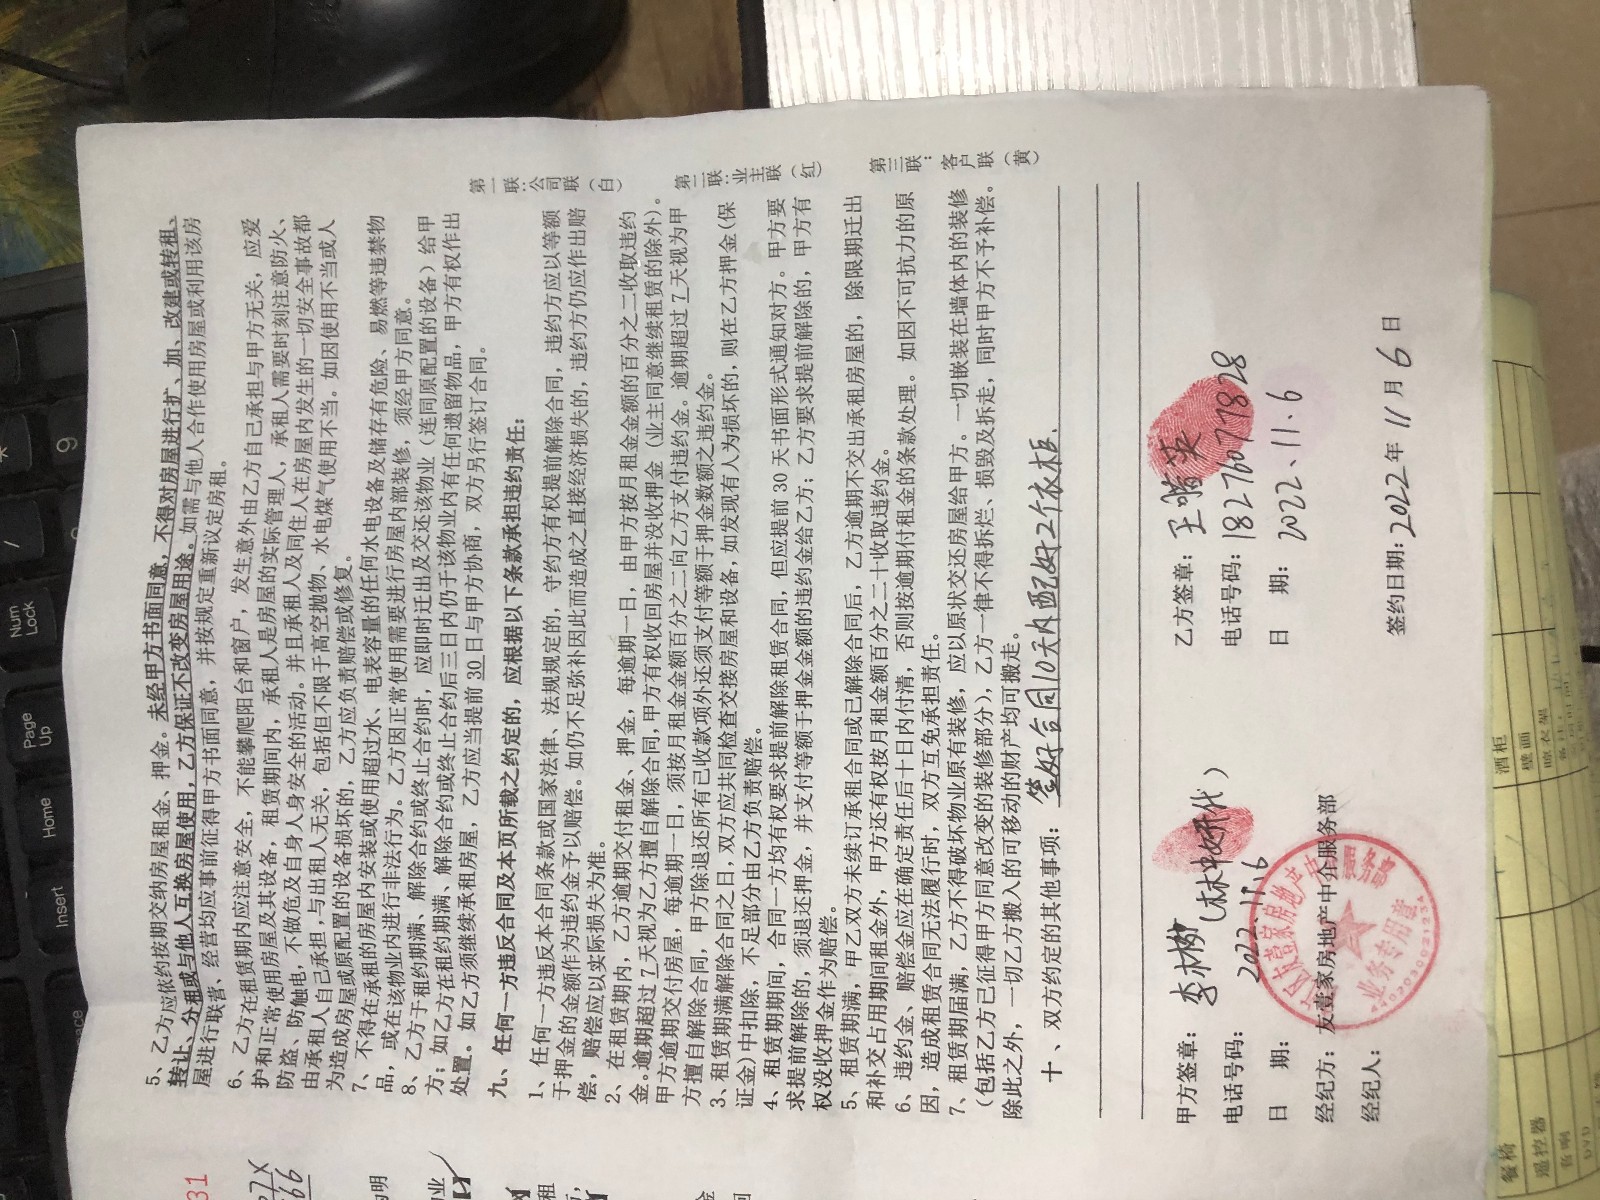 5、乙方应依约按期交纳房屋租金、押金。未经甲方书面同意，不得对房屋进行扩、加、改建或转租、
转让、分租或与他人互换房屋使用，乙方保证不改变房屋用途。如需与他人合作使用房屋或利用该房
屋进行联营、经营均应事前征得甲方书面同意，并按规定重新议定房租。
6、乙方在租赁期内应注意安全，不能攀爬阳台和窗户，发生意外由乙方自己承担与甲方无关，应爱
护和正常使用房屋及其设备，租赁期间内，承租人是房屋的实际管理人，承租人需要时刻注意防火、
防盗、防触电，不做危及自身人身安全的活动。并且承租人及同住人在房屋内发生的一切安全事故都
由承租人自己承担，与出租人无关，包括但不限于高空抛物、水电煤气使用不当。如因使用不当或人
为造成房屋或原配置的设备损坏的，乙方应负责赔偿或修复。
7、不得在承租的房屋内安装或使用超过水、电表容量的任何水电设备及储存有危险、易燃等违禁物
品，或在该物业内进行非法行为。乙方因正常使用需要进行房屋内部装修，须经甲方同意。
8、乙方于租约期满、解除合约或终止合约时，应即时迁出及交还该物业（连同原配置的设备）给甲
方；如乙方在租约期满、解除合约或终止合约后三日内仍于该物业内有任何遗留物品，甲方有权作出
处置。如乙方须继续承租房屋，乙方应当提前 30 日与甲方协商，双方另行签订合同。
九、任何一方违反合同及本页所载之约定的，应根据以下条款承担违约责任：
1、任何一方违反本合同条款或国家法律、法规规定的，守约方有权提前解除合同，违约方应以等额
于押金的金额作为违约金予以赔偿。如仍不足弥补因此而造成之直接经济损失的，违约方仍应作出赔
偿，赔偿应以实际损失为准。
2、在租赁期内，乙方逾期交付租金、押金，每逾期一日，由甲方按月租金金额的百分之二收取违约
金。逾期超过 7 天视为乙方擅自解除合同，甲方有权收回房屋并没收押金（业主同意继续租赁的除外）。
甲方逾期交付房屋，每逾期一日，须按月租金金额百分之二向乙方支付违约金。逾期超过 7 天视为甲
方擅自解除合同，甲方除退还所有已收款项外还须支付等额于押金数额之违约金。
3、租赁期满解除合同之日，双方应共同检查交接房屋和设备，如发现有人为损坏的，则在乙方押金（保
证金）中扣除，不足部分由乙方负责赔偿。
4、租赁期期间，合同一方均有权要求提前解除租赁合同，但应提前 30 天书面形式通知对方。甲方要
求提前解除的，须退还押金，并支付等额于押金金额的违约金给乙方；乙方要求提前解除的，甲方有
权没收押金作为赔偿。
5、租赁期满，甲乙双方未续订承租合同或已解除合同后，乙方逾期不交出承租房屋的，除限期迁出
和补交占用期间租金外，甲方还有权按月租金额百分之二十收取违约金。
6、违约金、赔偿金应在确定责任后十日内付清，否则按逾期付租金的条款处理。如因不可抗力的原
因，造成租赁合同无法履行时，双方互免承担责任。
7、租赁期届满，乙方不得破坏物业原有装修，应以原状交还房屋给甲方。一切嵌装在墙体内的装修
（包括乙方已征得甲方同意改变的装修部分），乙方一律不得拆烂、损毁及拆走，同时甲方不予补偿。
除此之外，一切乙方搬入的可移动的财产均可搬走。
十、双方约定的其他事项：签好合同10天内配好2个衣柜.
甲方签章：李树（林中妍代） 乙方签章：王嘴英
电话号码： 电话号码：18276077828
日 期：2022.11.6 日 期：2022.11.6
经纪方：友壹家房地产中介服务部
经纪人： 签约日期：2022年11月6日
区友壹家房地产中介服务部
业务专用章
第一联：公司联（白）
第二联：业主联（红）
第三联：客户联（黄）
31
Num
Lock
Page
Up
Home
Insert
9
/
餐椅
遥控器
音响
DVD
酒柜
壁画
晾衣架